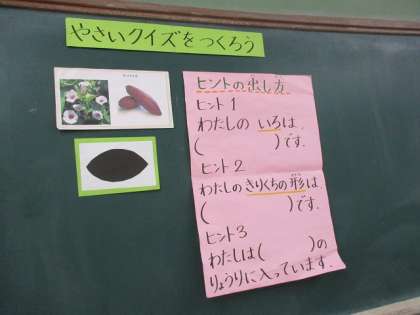 やさいクイズをつくろう
ヒントの出し方
ヒント1
わたしの いろは、
(　　　　)です。
ヒント2
わたしのきりくちの形は、
(　　　　)です。
ヒント3
わたしは(　　　)の
りょうりに入っています。